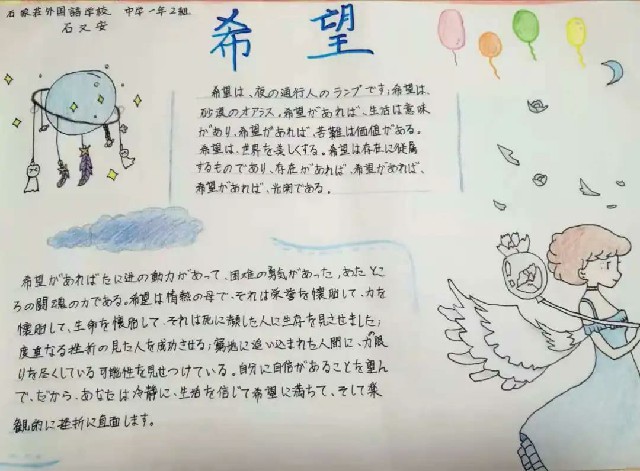 石家荘外国語学校 中学一年2組
石又安
希望
希望は、夜の通行人のランプです;希望は、
砂漠のオアシス。希望があれば、生活は意味
があり、希望があれば、苦難は価値がある。
希望は、世界を美しくする。希望は存在に従属
するものであり、存在があれば、希望があれば、
希望があれば、光南である。
希望があればたに进の動力があって、困难の勇気があった,あたところ
の闘魂の力である。希望は情熱の母で、それは栄誉を懐胎して、力を
懐胎して、生命を懐胎して、それは死に瀕した人に生存を見させました;
度重なる挫折の見た人を成功させる;窮地に追い込まれた人間に、力限
りを尽くしている可能性を見せつけている。自分に自信があることを望ん
で、だから、あなたは冷静に、生活を信じて希望に満ちて、そして楽
観的に挫折に直面します。